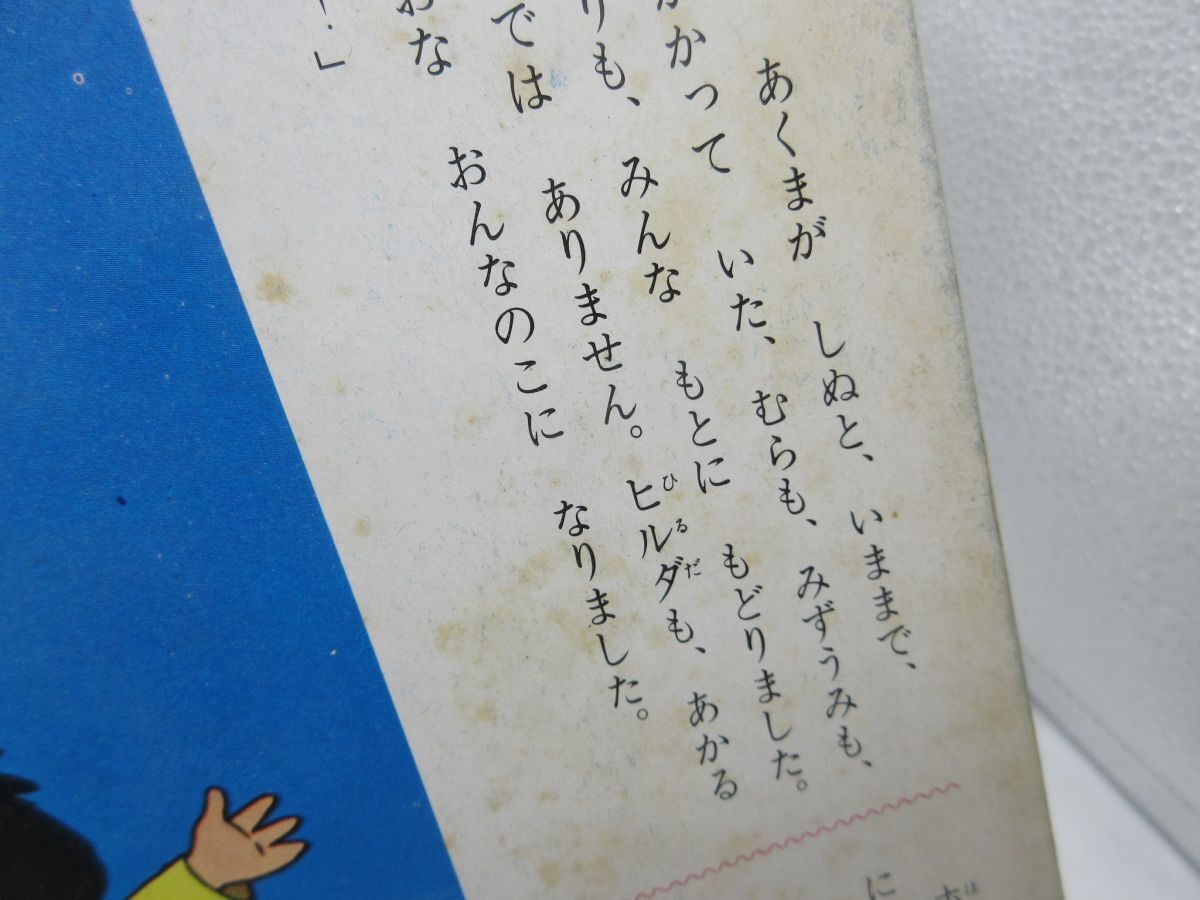 あくまが しぬと、いままで、
かかって いた、むらも、みずうみも、
りも、みんな もとに もどりました。
では ありません。ヒルダも、あかる
おな おんなのこに なりました。
！」
ひるだ
に